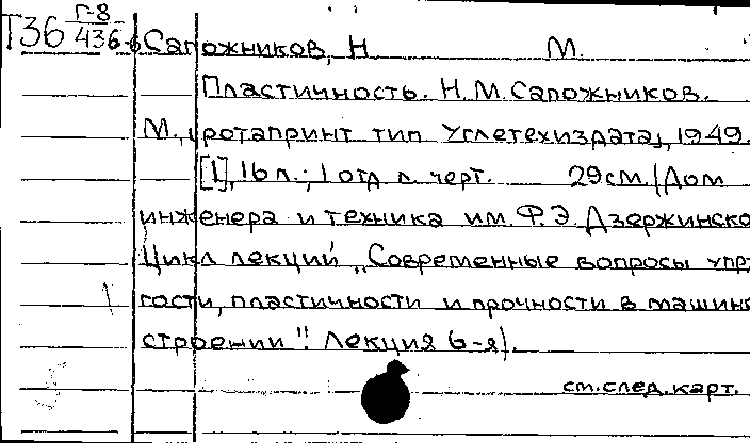 Г-8
Т36 436-6 Сапожников, Н. М.
Пластичность. Н.М. Сапожников.
М., ротапринт тип Углетехиздата, 1949.
[1], 16 л.; 1 отд л. черт. 29см. (Дом
инженера и техника им. Ф.Э. Дзержинско
Цикл лекций „Современные вопросы упру
гости, пластичности и прочности в машино
строении". Лекция 6-я).
см. след. карт.